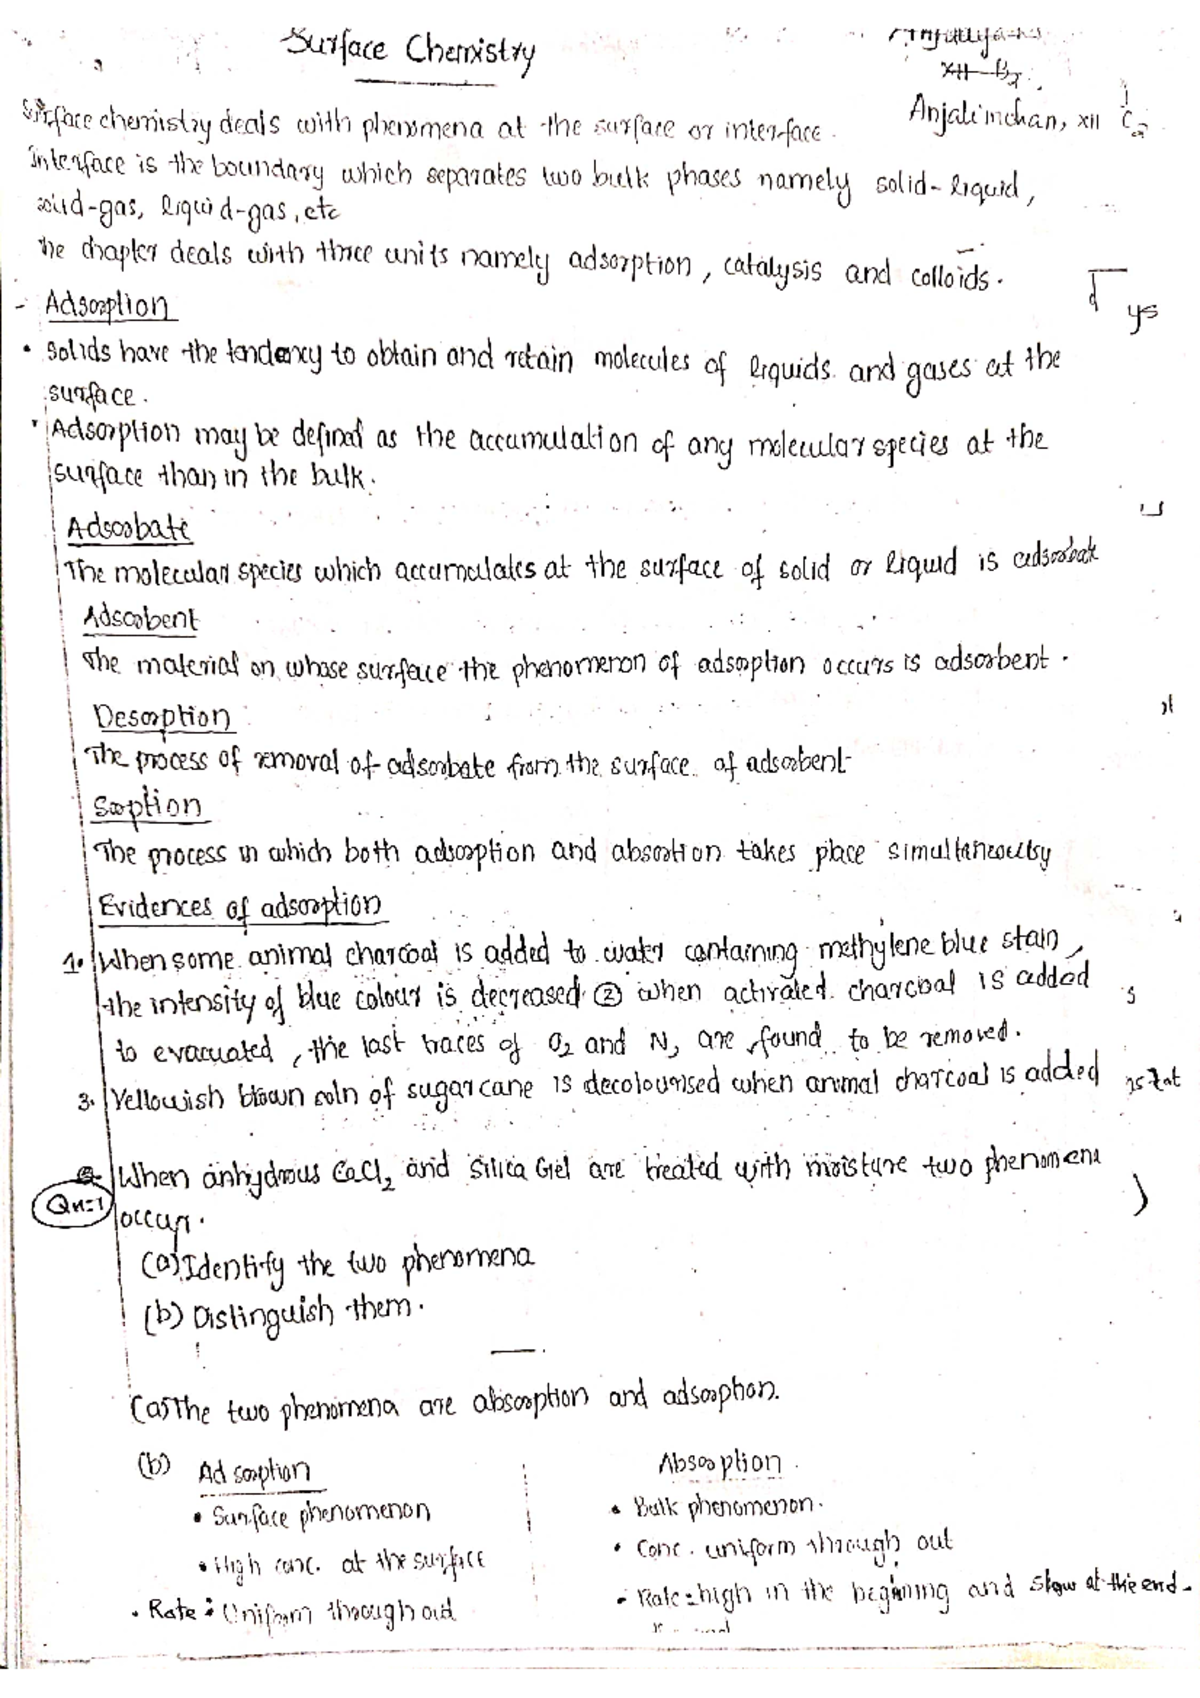 Surface Chemistry
XII
Anjali mohan, XII C2
Surface chemistry deals with phenomena at the surface or interface.
Interface is the boundary which separates two bulk phases namely solid-liquid,
solid-gas, liquid-gas, etc
he chapter deals with three units namely adsorption, catalysis and colloids.
- Adsorption
• Solids have the tendency to obtain and retain molecules of liquids and gases at the
surface.
• Adsorption may be defined as the accumulation of any molecular species at the
surface than in the bulk.
Adsorbate
The molecular species which accumulates at the surface of solid or liquid is adsorbate
Adsorbent
The material on whose surface the phenomenon of adsorption occurs is adsorbent.
Desorption
The process of removal of adsorbate from the surface of adsorbent
Sorption
The process in which both adsorption and absortion takes place simultaneoulsy
Evidences of adsorption
1. When some animal charcoal is added to water containing methylene blue stain,
the intensity of blue colour is decreased. ② when activated charcoal is added
to evacuated, the last traces of O2 and N2 are found to be removed.
3. Yellowish brown soln of sugarcane is decolourised when animal charcoal is added
When anhydrous CaCl2 and Silica Gel are treated with moisture two phenomena
Qn:1 occur.
(a) Identify the two phenomena
(b) Distinguish them.
(a) The two phenomena are absorption and adsorption.
(b) Adsorption Absorption.
• Surface phenomenon • Bulk phenomenon.
• High conc. at the surface • Conc. uniform through out
• Rate: Uniform through out • Rate: high in the beginning and slow at the end.